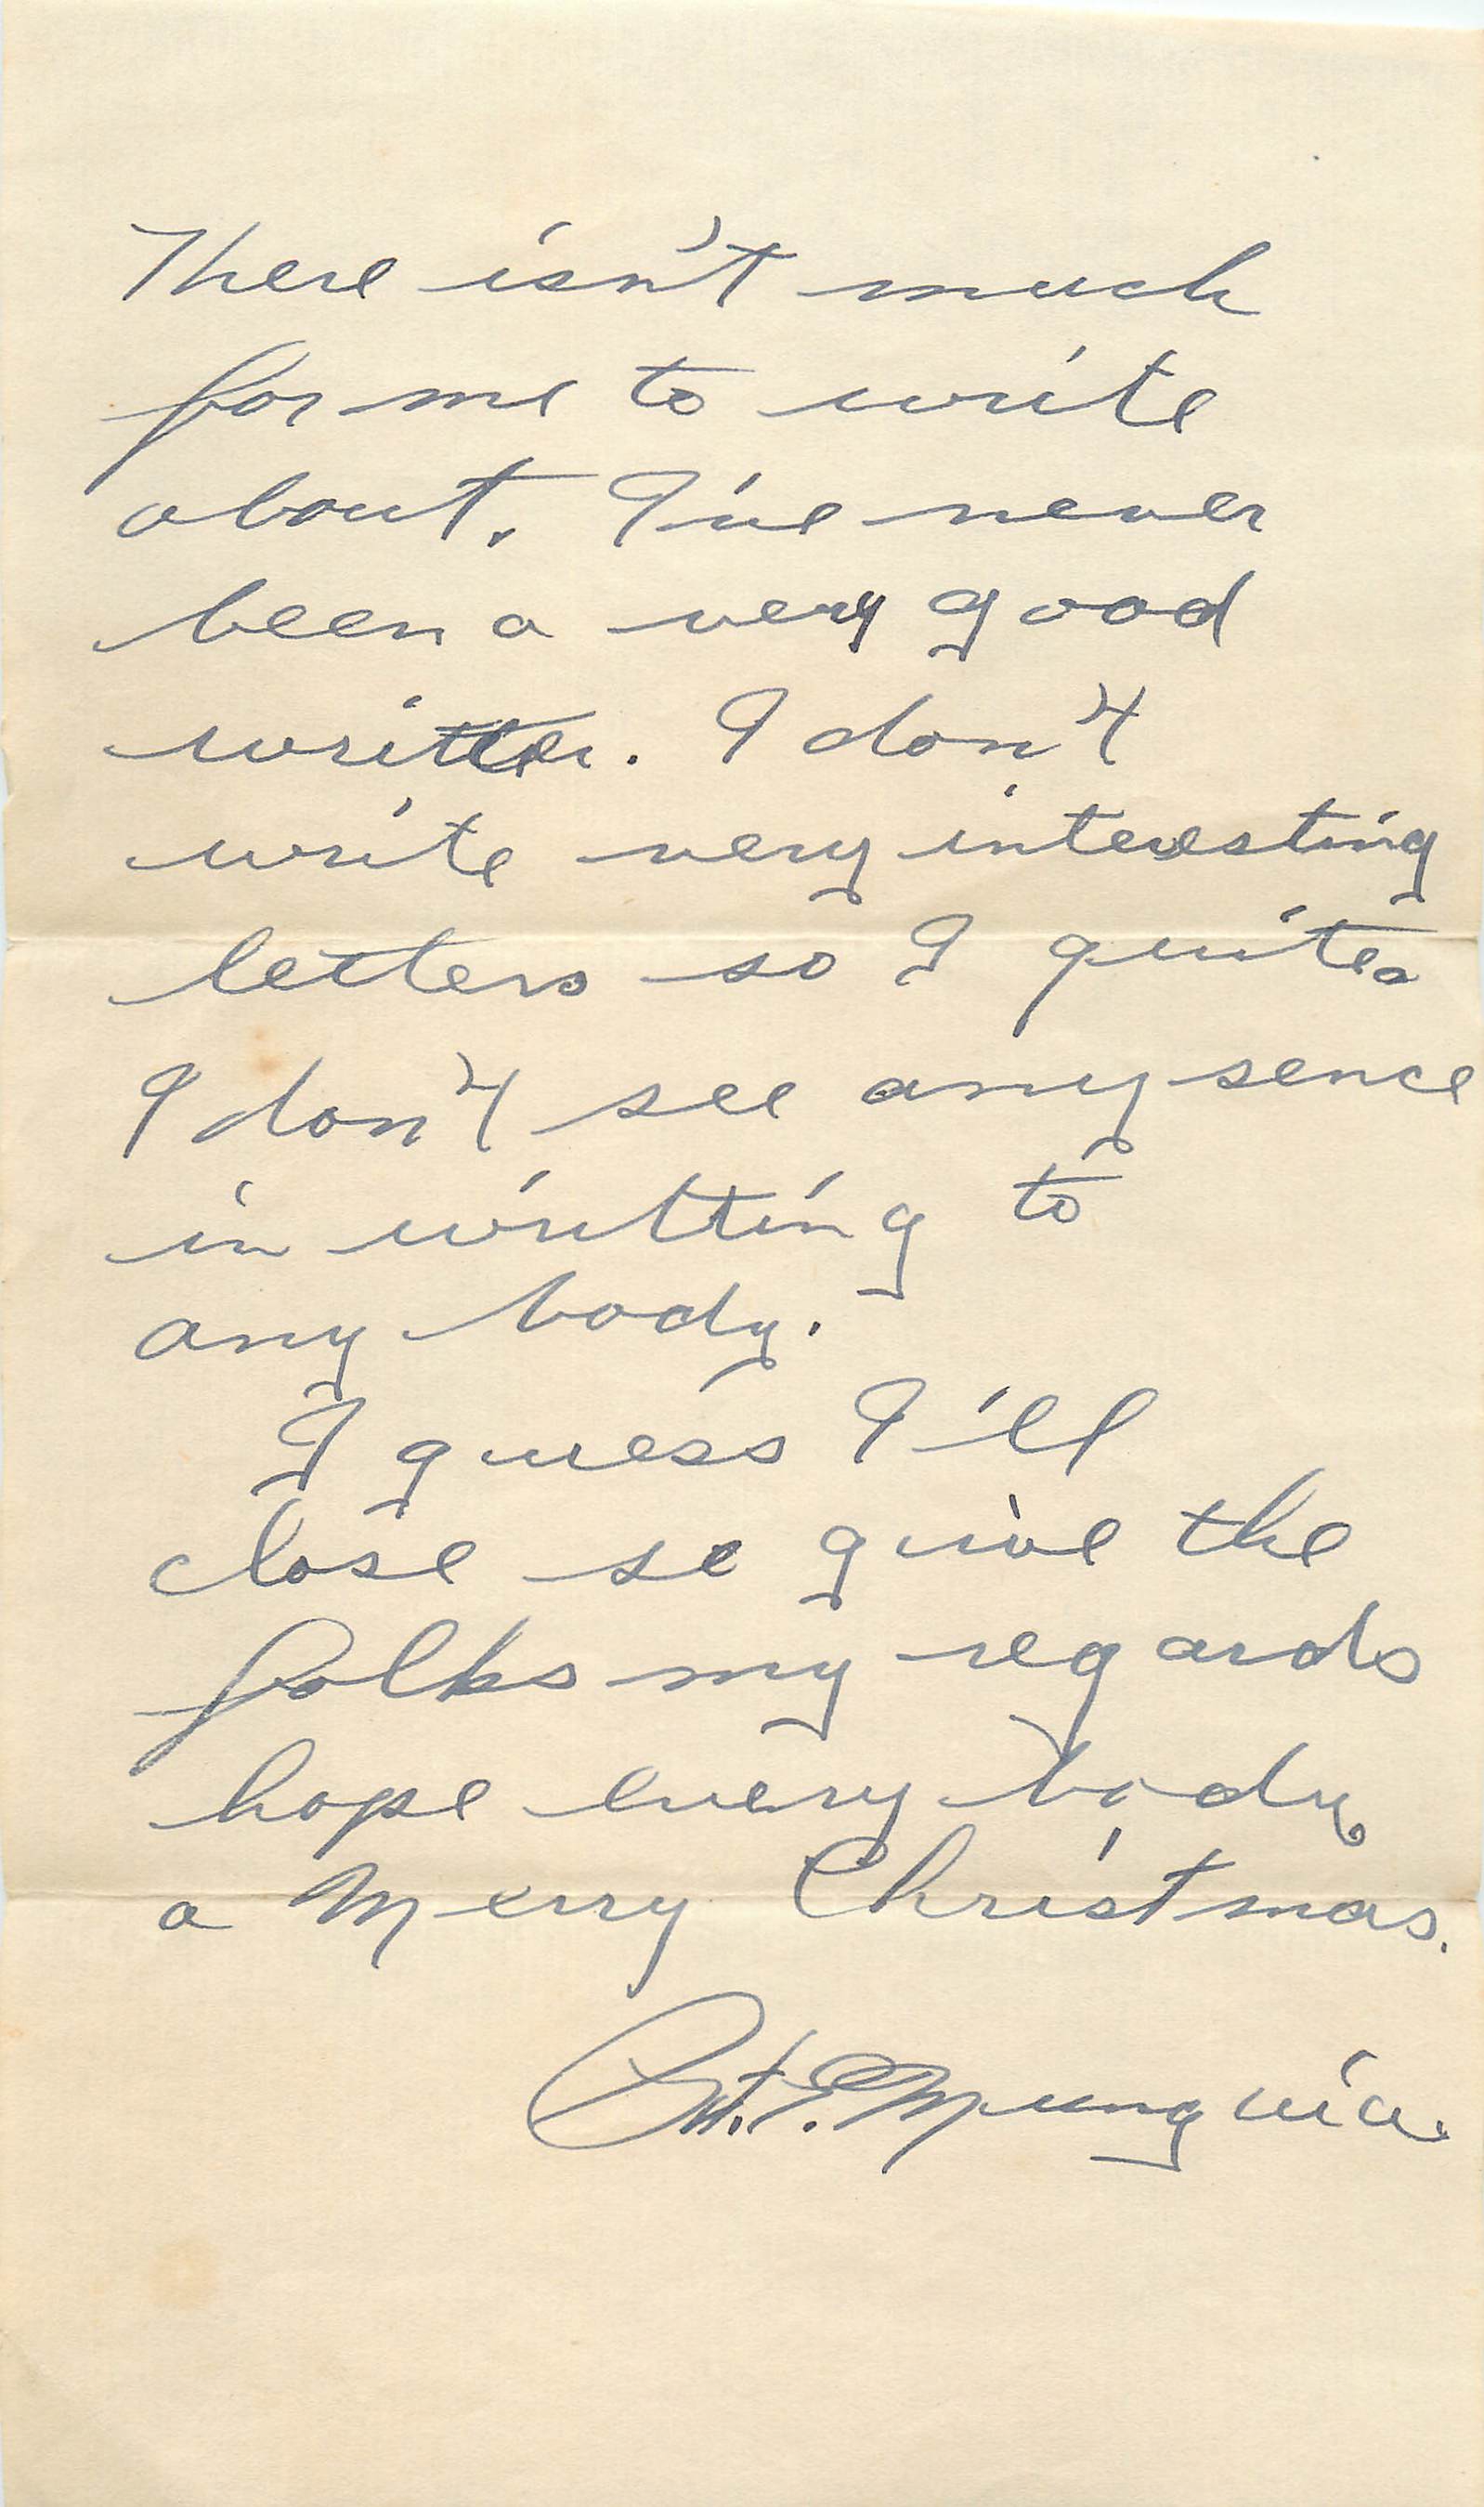 There isn't much
for me to write
about. I've never
been a very good
writter. I don't
write very interesting
letters so I quite.
I don't see any sence
in writting to
any body.
I guess I'll
close so guive the
folks my regards
hope every body
a Merry Christmas.
Pvt. E. Munguia.